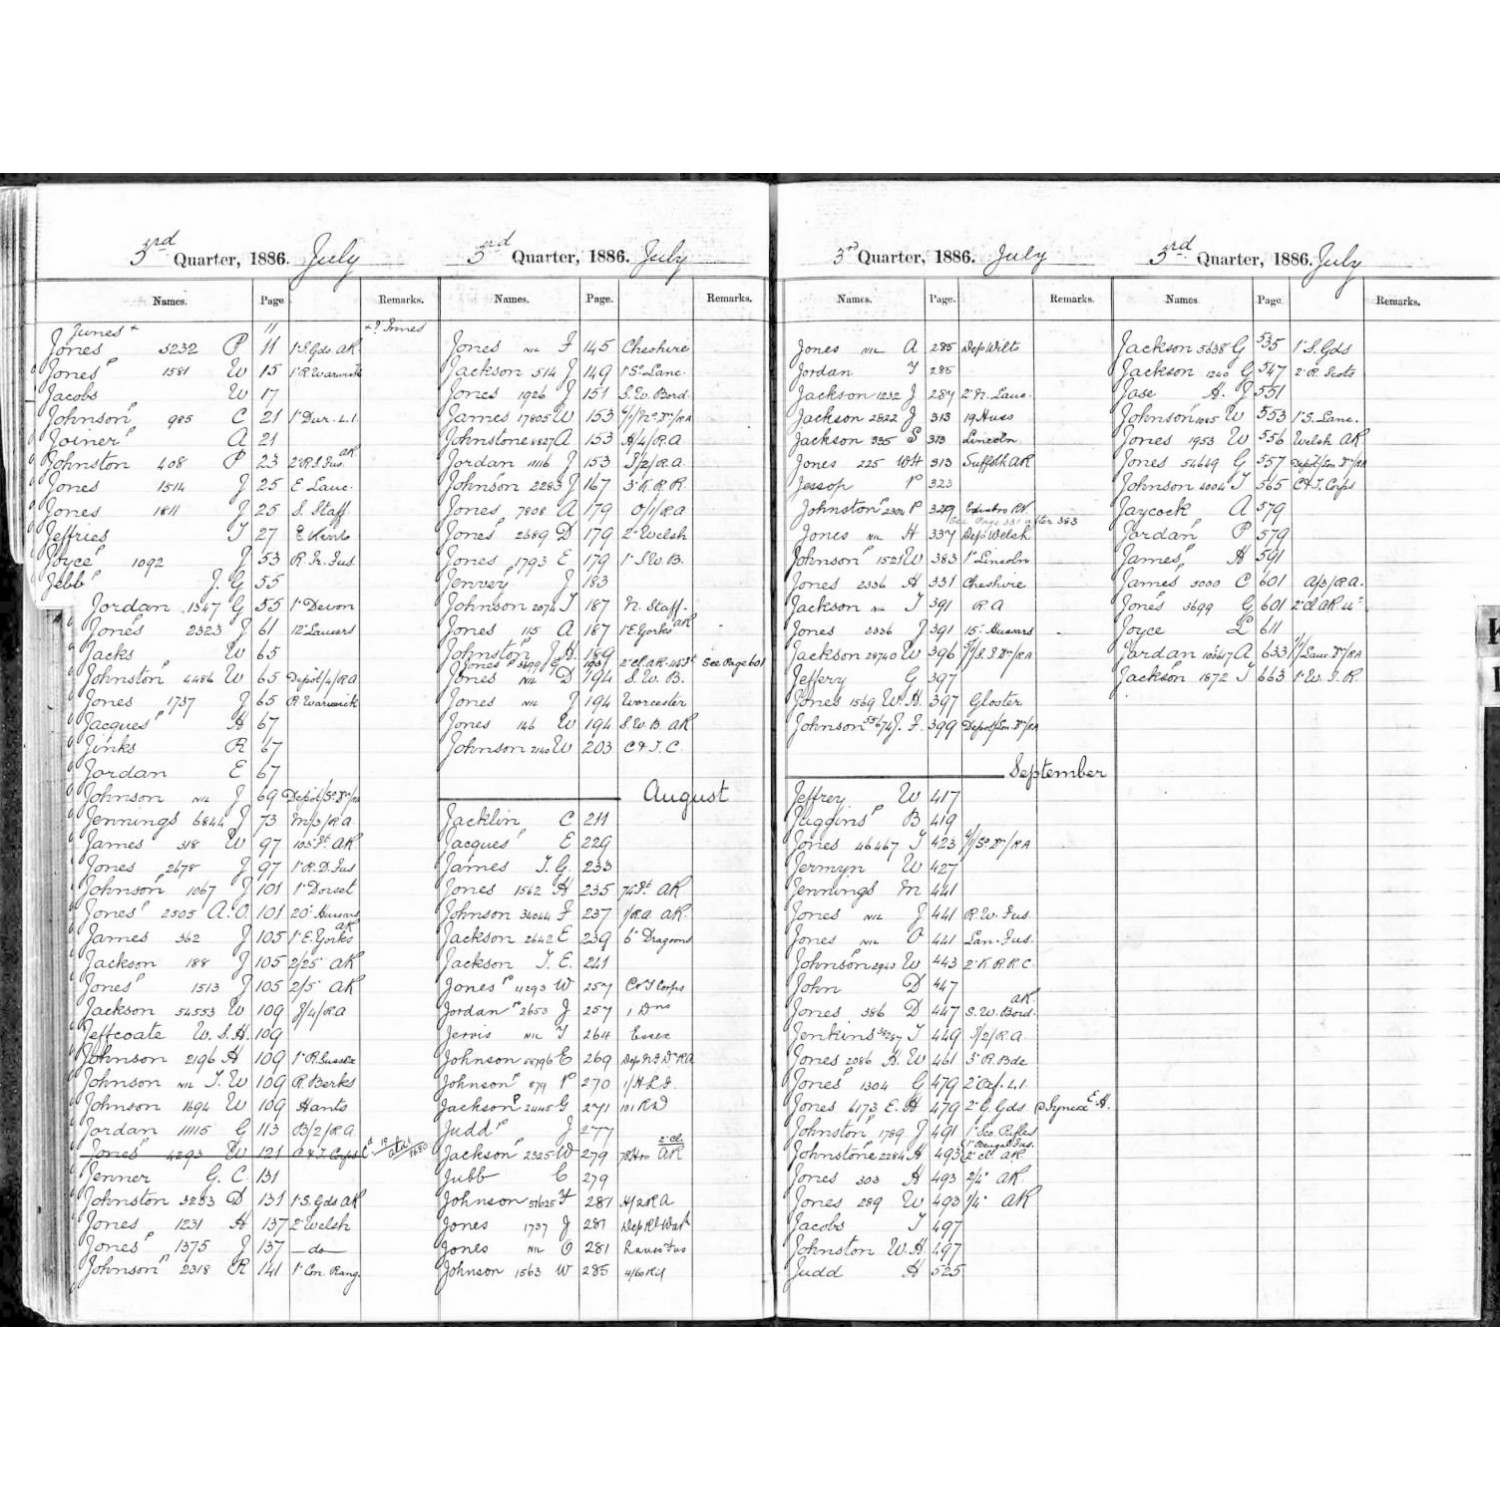 3rd Quarter, 1886. July
Names. Page Remarks.
Junes + 11 +? Innes
Jones 3232 P 11 1 S. Gds AR
Jones P 1581 W 15 1 R Warwick
Jacobs W 17
Johnson P 985 C 21 1 Dur. L.I.
Joiner P A 21
Johnston 408 P 23 2 R. I Fus. AR
Jones 1514 J 25 E Lanc.
Jones 1811 J 25 S. Staff
Jeffries T 27 E Kent
Joyce P 1092 J 53 R. Ir. Fus
Jebb P J. G 55
Jordan 1347 G 55 1 Devon
Jones 2323 J 61 12 Lancers
Jacks W 65
Johnston P 4486 W 65 Depôt/4/RA
Jones 1737 J 65 R Warwick
Jacques P A 67
Jinks R 67
Jordan E 67
Johnson NIL J 69
Jennings 6844 J 73 M/3/RA
James 318 W 97 103 Ft AR
Jones 2678 J 97 1 R. D. Fus
Johnson P 1067 J 101 1 Dorset
Jones P 2505 A. O. 101 20 Hussars
James 362 J 105 1 E. Yorks AR
Jackson 188 J 105 2/25 AR
Jones P 1513 J 105 2/5 AR
Jackson 54553 W 109 J/4/RA
Jeffcoate W. S. H. 109
Johnson 2196 H 109 1 R. Sussex
Johnson NIL T. W 109 R. Berks
Johnson 1694 W 109 Hants
Jordan 11115 G 113 B/2/RA
Jones P 4293 W 121 C & T. Corps
Jenner G. C. 131
Johnston 3233 D 131 1 S. Gds AR
Jones 1231 H 137 2 Welsh
Jones P 1375 J 137 — do —
Johnson P 2318 R 141 1 Con. Rang.
3rd Quarter, 1886. July
Names. Page. Remarks.
Jones NIL F 145 Cheshire
Jackson 514 J 149 1 S. Lanc.
Jones 1926 J 151 S. W. Bord.
James 17805 W 153
Johnstone 6827 A 153 H/4/RA
Jordan 11116 J 153 J/2/RA
Johnson 2283 J 167 3 K R R.
Jones 7808 A 179 O/1/RA
Jones 2689 D 179 2 Welsh
Jones 1793 E 179 1 S. W. B.
Jenvey P J 183
Johnson 2074 T 187 N. Staff.
Jones 115 A 187 1 E Yorks AR
Johnston J. H. 189
Jones P 3699 G 193 2 Cl. AR See Page 601
Jones NIL D 194 S. W. B.
Jones NIL J 194 Worcester
Jones 146 W 194 S. W. B. AR
Johnson W 203 C & T. C.
August
Jacklin C 211
Jacques P E 229
James T. G. 233
Jones 1562 H 235 74 Ft AR
Johnson 34044 F 237 1/RA AR.
Jackson 2642 E 239 6 Dragoons
Jackson T. E. 241
Jones P 4293 W 257 C & T Corps
Jordan P 2653 J 257 1 Dns
Jervis NIL T 264 Essex
Johnson E 269
Johnson P 879 P 270 1/H L I.
Jackson P 2445 G 271
Judd P J 277
Jackson P 2325 W 279 2 Cl. AR
Jubb C 279
Johnson F 281 H/2 RA
Jones 1737 J 281
Jones NIL O 281
Johnson 1563 W 285
3rd Quarter, 1886. July
Names. Page. Remarks.
Jones NIL A 285 Dep Wilts
Jordan T 285
Jackson 1232 J 287 2 N. Lanc.
Jackson 2822 J 313 19 Huss
Jackson 335 S 313 Lincoln
Jones 225 WH 313 Suffolk AR
Jessop P 323
Johnston P 2304 P 329
See Page 331 after 383
Jones NIL H 337 Dep Welsh
Johnson P 1521 W 383 1 Lincoln
Jones 2336 H 331 Cheshire
Jackson NIL T 391 RA
Jones 2336 J 391 15 Hussars
Jackson 28740 W 396
Jeffery G 397
Jones 1569 W. H. 397 Gloster
Johnson J. F. 399
September
Jeffrey W 417
Juggins P B 419
Jones 46467 T 423
Jermyn W 427
Jennings M 441
Jones NIL J 441 R. W. Fus.
Jones NIL O 441 Lan. Fus.
Johnson P 2943 W 443 2 K. R. R. C.
John D 447
Jones 386 D 447 S. W. Bord. AR
Jenkins T 449 J/2/RA
Jones 2086 H. W 461 3 R. Bde
Jones P 1304 G 479 2 Oxf. L.I.
Jones 6173 E. H 479 2 G. Gds.
Johnston P 1789 J 491 1 Sco. Rifles
Johnstone 2284 H 493 2 Cl AR
Jones 303 H 493 2/4 AR
Jones 289 W 493 1/4 AR
Jacobs T 497
Johnston W. H. 497
Judd H 525
3rd Quarter, 1886. July
Names. Page. Remarks.
Jackson 5638 G 535 1 S. Gds
Jackson 1240 G 547 2 R. Scots
Jase H. J 551
Johnson P 1085 W 553 1 S. Lanc.
Jones 1953 W 556 Welsh AR
Jones 54649 G 557
Johnson 4004 T 565 C & T. Corps
Jaycock A 579
Jordan P P 579
James P H 591
James P 3000 C 601 A/3/RA.
Jones P 3699 G 601 2 Cl AR
Joyce L 611
Jardan A 633
Jackson P 1872 T 663 1 W. I. R.